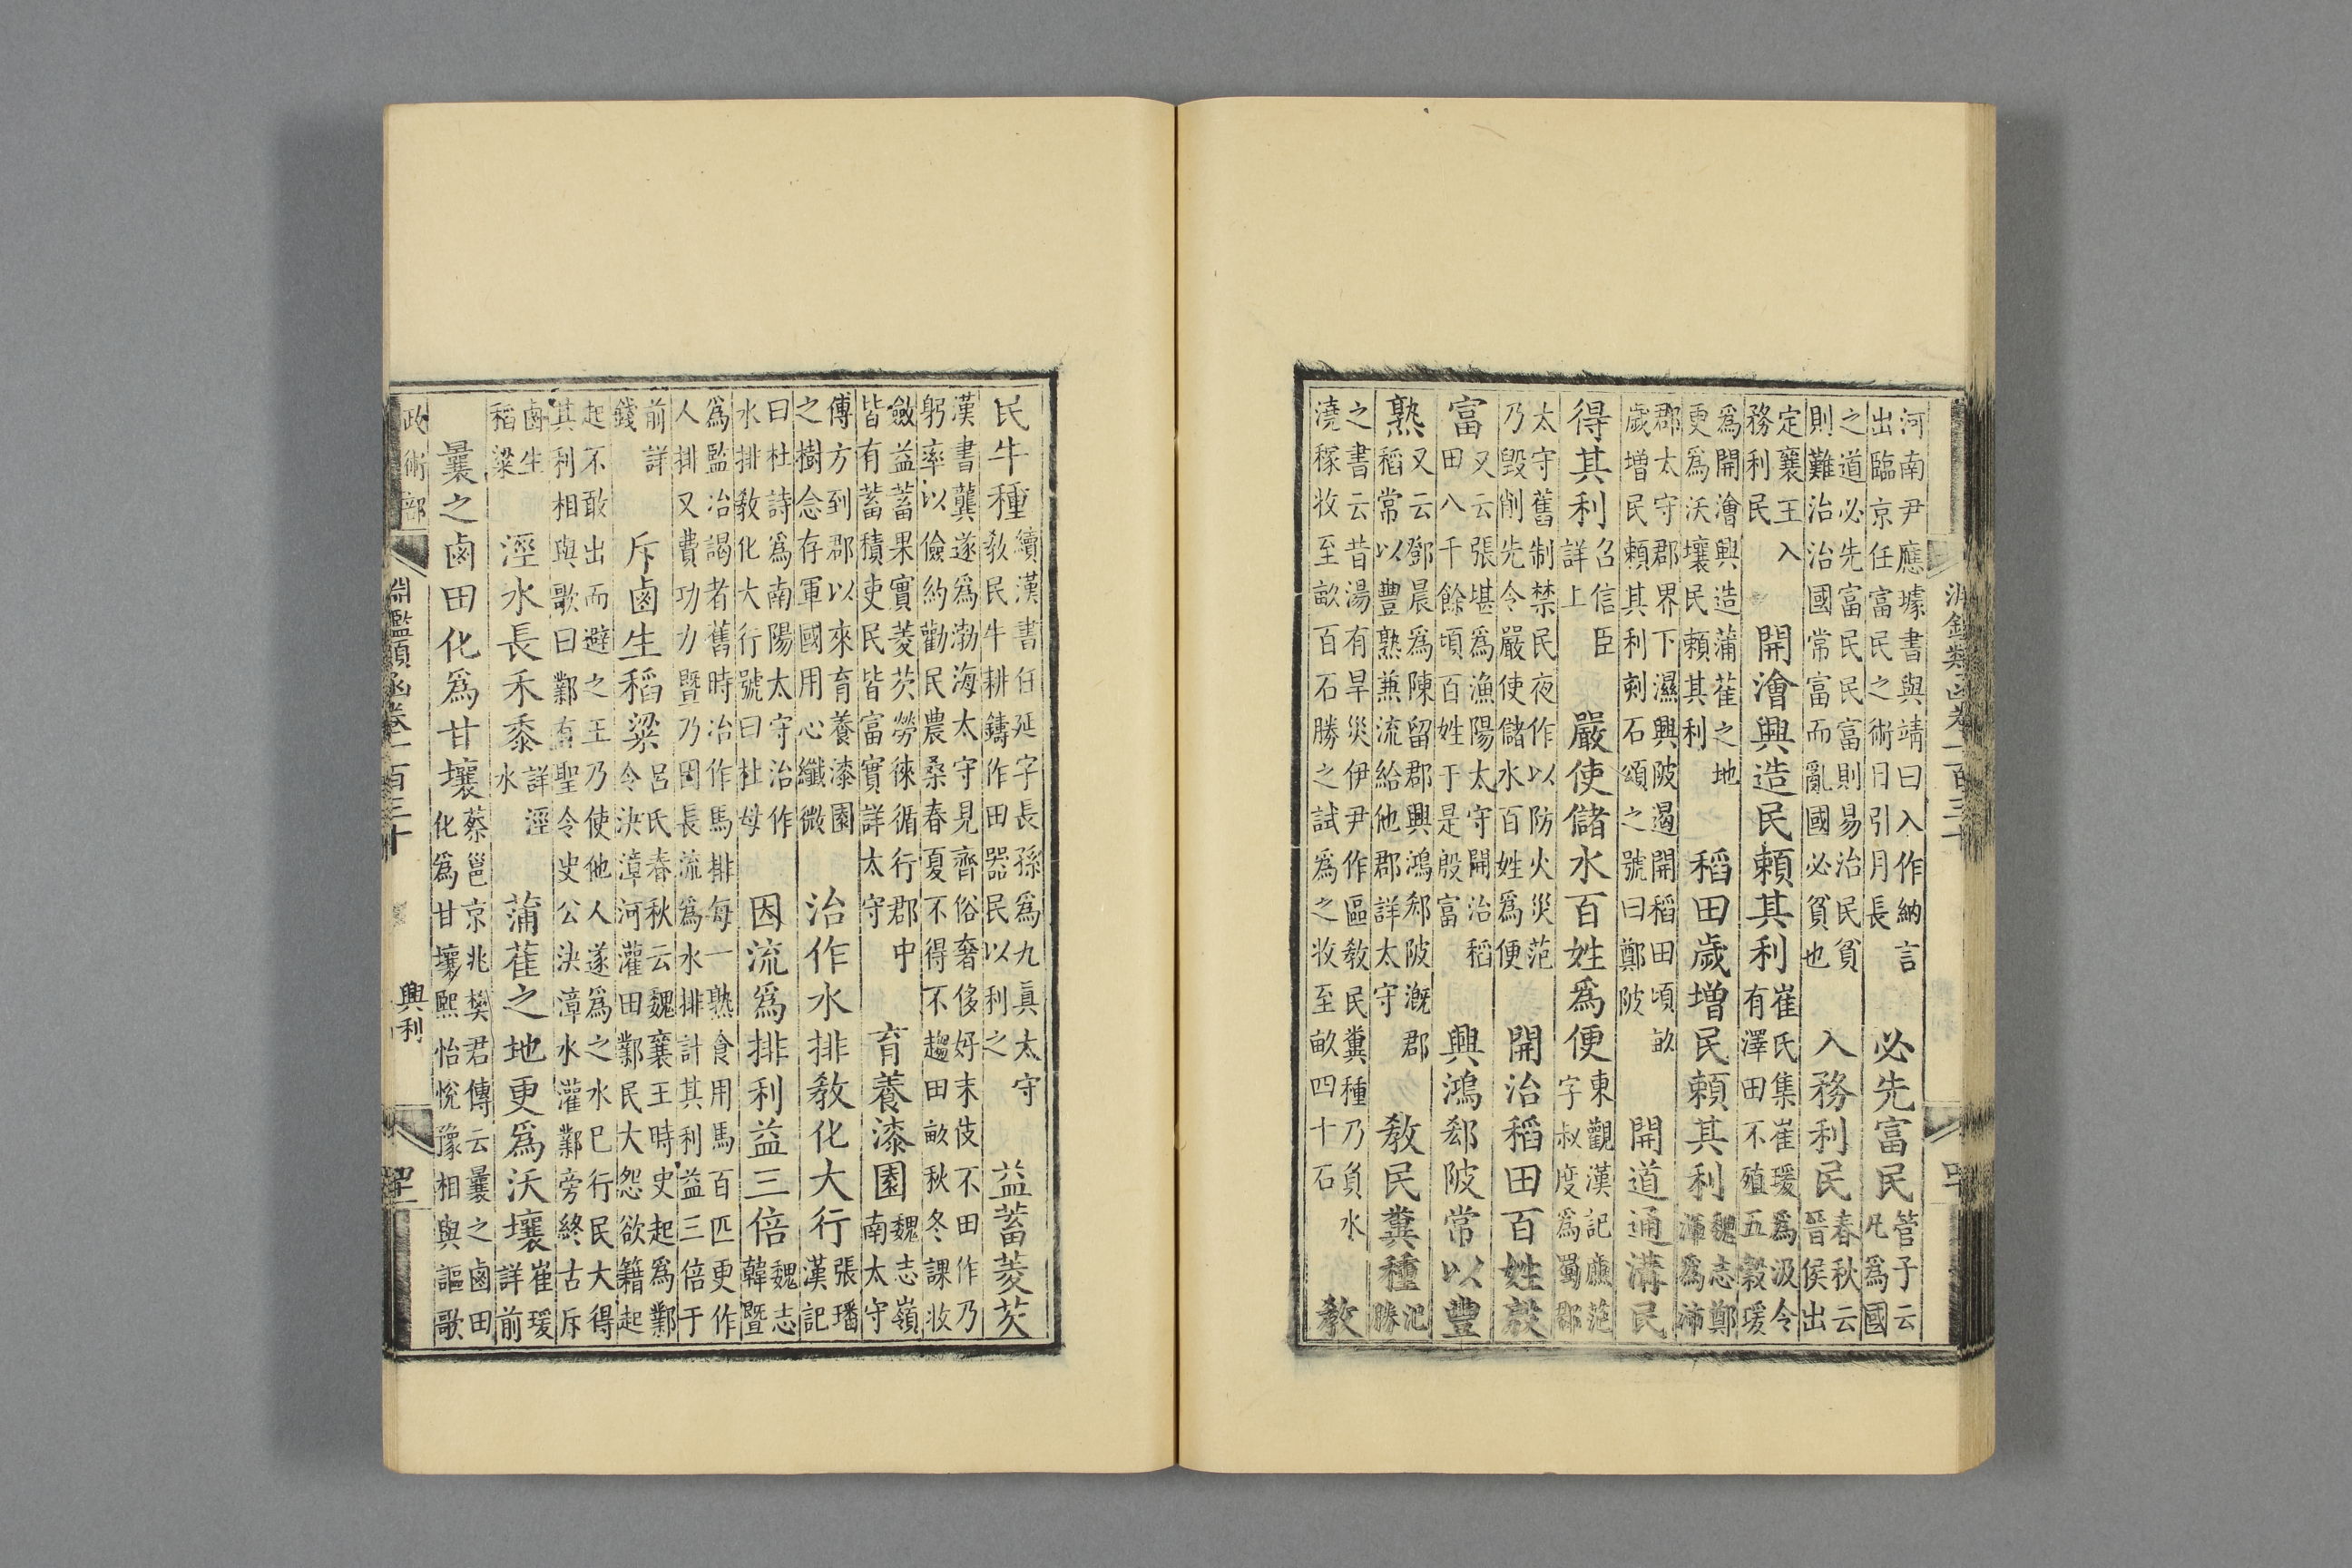 河南尹應璩書與靖曰入作納言
出臨京任富民之術日引月長
必先富民
管子云
凡爲國
之道必先富民民富則易治民貧
則難治治國常富而亂國必貧也
入務利民
春秋云
晉侯出
定襄王入
務利民
開澮興造民賴其利
崔氏集崔瑗爲汲令
有澤田不殖五穀瑗
爲開澮興造蒲萑之地
更爲沃壤民賴其利
稻田歲增民賴其利
魏志鄭
渾爲沛
郡太守郡界下濕興陂遏開稻田頃畝
歲增民賴其利刻石頌之號曰鄭陂
開道通溝民
得其利
召信臣
詳上
嚴使儲水百姓爲便
東觀漢記廉范
字叔度爲蜀郡
太守舊制禁民夜作以防火災范
乃毀削先令嚴使儲水百姓爲便
開治稻田百姓殷
富
又云張堪爲漁陽太守開治稻
田八千餘頃百姓于是殷富
興鴻郄陂常以豐
熟
又云鄧晨爲陳留郡興鴻郄陂溉郡
稻常以豐熟兼流給他郡詳太守
教民糞種
氾
勝
之書云昔湯有旱災伊尹作區教民糞種乃負水
澆稼牧至畝百石勝之試爲之牧至畝四十石
教
淵鑑類函卷一百三十
民牛種
續漢書任延字長孫爲九眞太守
敎民牛耕鑄作田器民以利之
益蓄菱芡
漢書龔遂爲渤海太守見齊俗奢侈好末伎不田作乃
躬率以儉約勸民農桑春夏不得不趨田畝秋冬課收
斂益蓄果實菱芡勞徠循行郡中
皆有蓄積吏民皆富實詳太守
育養漆園
魏志嶺
南太守
傅方到郡以來育養漆園
之樹念存軍國用心纖微
治作水排教化大行
張璠
漢記
曰杜詩爲南陽太守治作
水排敎化大行號曰杜母
因流爲排利益三倍
魏志
韓暨
爲監冶謁者舊時冶作馬排每一熟食用馬百匹更作
人排又費功力暨乃因長流爲水排計其利益三倍于
前詳
錢
斥鹵生稻粱
呂氏春秋云魏襄王時史起爲鄴
令決漳河灌田鄴民大怨欲籍起
起不敢出而避之王乃使他人遂爲之水已行民大得
其利相與歌曰鄴有聖令史公決漳水灌鄴旁終古斥
鹵生
稻粱
涇水長禾黍
詳涇
水
蒲萑之地更爲沃壤
崔瑗
詳前
曩之鹵田化爲甘壤
蔡邕京兆樊君傳云曩之鹵田
化爲甘壤熙怡悅豫相與謳歌
政術部
淵鑑類函卷一百三十
興利